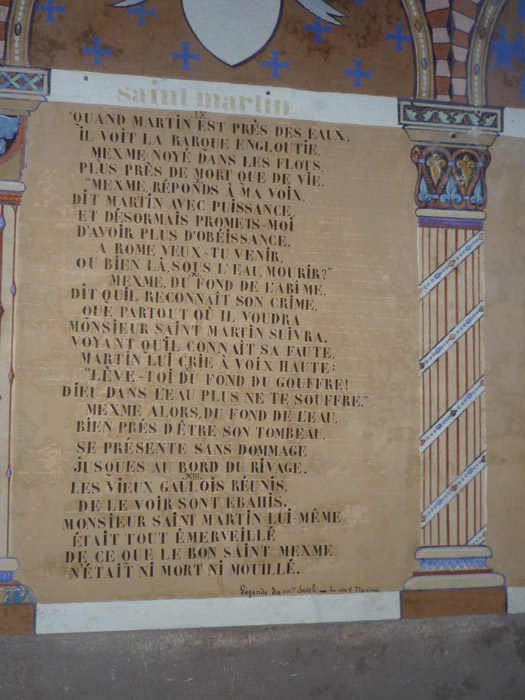 saint martin
IX
QUAND MARTIN EST PRÈS DES EAUX,
IL VOIT LA BARQUE ENGLOUTIE,
MEXME NOYÉ DANS LES FLOTS,
PLUS PRÈS DE MORT QUE DE VIE.
X
"MEXME, RÉPONDS À MA VOIX,
DIT MARTIN AVEC PUISSANCE,
ET DÉSORMAIS PROMETS-MOI
D'AVOIR PLUS D'OBÉISSANCE.
A ROME VEUX-TU VENIR,
OU BIEN LÀ, SOUS L'EAU, MOURIR?"
XI
MEXME, DU FOND DE L'ABÎME,
DIT QU'IL RECONNAÎT SON CRIME,
QUE PARTOUT OÙ IL VOUDRA
MONSIEUR SAINT MARTIN SUIVRA.
VOYANT QU'IL CONNAÎT SA FAUTE,
MARTIN LUI CRIE À VOIX HAUTE:
"LÈVE-TOI DU FOND DU GOUFFRE!
DIEU DANS L'EAU PLUS NE TE SOUFFRE."
MEXME ALORS, DU FOND DE L'EAU,
BIEN PRÈS D'ÊTRE SON TOMBEAU,
SE PRÉSENTE SANS DOMMAGE
JUSQUES AU BORD DU RIVAGE.
XIII
LES VIEUX GAULOIS RÉUNIS,
DE LE VOIR SONT EBAHIS.
MONSIEUR SAINT MARTIN LUI-MÊME
ÉTAIT TOUT ÉMERVEILLÉ
DE CE QUE LE BON SAINT MEXME
N'ÉTAIT NI MORT NI MOUILLÉ.
Légende du Siècle